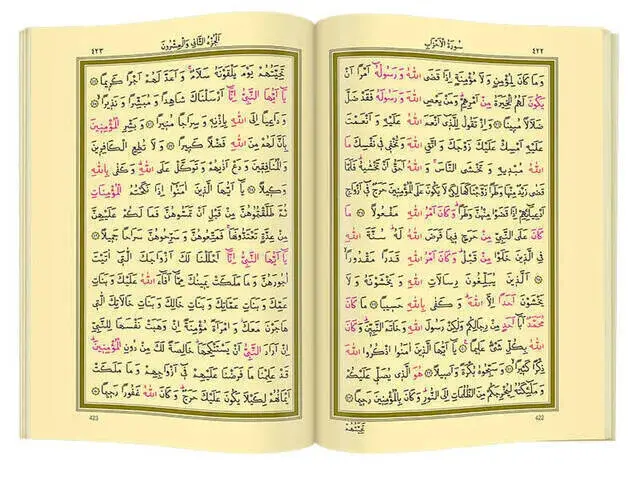 ٤٢٢
سُورَةُ الْاَحْزَابِ
وَمَا كَانَ لِمُؤْمِنٍ وَلَا مُؤْمِنَةٍ اِذَا قَضَى اللّٰهُ وَرَسُولُهُٓ اَمْرًا اَنْ
يَكُونَ لَهُمُ الْخِيَرَةُ مِنْ اَمْرِهِمْۜ وَمَنْ يَعْصِ اللّٰهَ وَرَسُولَهُ فَقَدْ ضَلَّ
ضَلَالًا مُبِينًا ۞ وَاِذْ تَقُولُ لِلَّذِٓي اَنْعَمَ اللّٰهُ عَلَيْهِ وَاَنْعَمْتَ
عَلَيْهِ اَمْسِكْ عَلَيْكَ زَوْجَكَ وَاتَّقِ اللّٰهَ وَتُخْفِي فِي نَفْسِكَ مَا
اللّٰهُ مُبْدِيهِ وَتَخْشَى النَّاسَۚ وَاللّٰهُ اَحَقُّ اَنْ تَخْشٰيهُۜ فَلَمَّا
قَضٰى زَيْدٌ مِنْهَا وَطَرًا زَوَّجْنَاكَهَا لِكَيْ لَا يَكُونَ عَلَى الْمُؤْمِنِينَ حَرَجٌ فِٓي اَزْوَاجِ
اَدْعِيَٓائِهِمْ اِذَا قَضَوْا مِنْهُنَّ وَطَرًاۜ وَكَانَ اَمْرُ اللّٰهِ مَفْعُولًا ۞ مَا
كَانَ عَلَى النَّبِيِّ مِنْ حَرَجٍ فِيمَا فَرَضَ اللّٰهُ لَهُۜ سُنَّةَ اللّٰهِ
فِي الَّذِينَ خَلَوْا مِنْ قَبْلُۜ وَكَانَ اَمْرُ اللّٰهِ قَدَرًا مَقْدُورًا
۞ اَلَّذِينَ يُبَلِّغُونَ رِسَالَاتِ اللّٰهِ وَيَخْشَوْنَهُ وَلَا
يَخْشَوْنَ اَحَدًا اِلَّا اللّٰهَۜ وَكَفٰى بِاللّٰهِ حَسِيبًا ۞ مَا كَانَ
مُحَمَّدٌ اَبَٓا اَحَدٍ مِنْ رِجَالِكُمْ وَلٰكِنْ رَسُولَ اللّٰهِ وَخَاتَمَ النَّبِيِّنَۜ وَكَانَ
اللّٰهُ بِكُلِّ شَيْءٍ عَلِيمًا ۞ يَٓا اَيُّهَا الَّذِينَ اٰمَنُوا اذْكُرُوا اللّٰهَ
ذِكْرًا كَثِيرًا ۞ وَسَبِّحُوهُ بُكْرَةً وَاَصِيلًا ۞ هُوَ الَّذِي يُصَلِّي عَلَيْكُمْ
وَمَلٰٓئِكَتُهُ لِيُخْرِجَكُمْ مِنَ الظُّلُمَاتِ اِلَى النُّورِۜ وَكَانَ بِالْمُؤْمِنِينَ رَحِيمًا ۞
422
تَحِيَّتُهُمْ
اَلْجُزْءُ الثَّانِي وَالْعِشْرُونَ
٤٢٣
تَحِيَّتُهُمْ يَوْمَ يَلْقَوْنَهُ سَلَامٌۚ وَاَعَدَّ لَهُمْ اَجْرًا كَرِيمًا ۞
يَٓا اَيُّهَا النَّبِيُّ اِنَّٓا اَرْسَلْنَاكَ شَاهِدًا وَمُبَشِّرًا وَنَذِيرًا ۞
وَدَاعِيًا اِلَى اللّٰهِ بِاِذْنِهِ وَسِرَاجًا مُنِيرًا ۞ وَبَشِّرِ الْمُؤْمِنِينَ
بِاَنَّ لَهُمْ مِنَ اللّٰهِ فَضْلًا كَبِيرًا ۞ وَلَا تُطِعِ الْكَافِرِينَ
وَالْمُنَافِقِينَ وَدَعْ اَذٰيهُمْ وَتَوَكَّلْ عَلَى اللّٰهِۜ وَكَفٰى بِاللّٰهِ
وَكِيلًا ۞ يَٓا اَيُّهَا الَّذِينَ اٰمَنُٓوا اِذَا نَكَحْتُمُ الْمُؤْمِنَاتِ
ثُمَّ طَلَّقْتُمُوهُنَّ مِنْ قَبْلِ اَنْ تَمَسُّوهُنَّ فَمَا لَكُمْ عَلَيْهِنَّ
مِنْ عِدَّةٍ تَعْتَدُّونَهَاۚ فَمَتِّعُوهُنَّ وَسَرِّحُوهُنَّ سَرَاحًا جَمِيلًا ۞
يَٓا اَيُّهَا النَّبِيُّ اِنَّٓا اَحْلَلْنَا لَكَ اَزْوَاجَكَ الّٰتِٓي اٰتَيْتَ
اُجُورَهُنَّ وَمَا مَلَكَتْ يَمِينُكَ مِمَّٓا اَفَٓاءَ اللّٰهُ عَلَيْكَ وَبَنَاتِ
عَمِّكَ وَبَنَاتِ عَمَّاتِكَ وَبَنَاتِ خَالِكَ وَبَنَاتِ خَالَاتِكَ الّٰتِي
هَاجَرْنَ مَعَكَۘ وَامْرَاَةً مُؤْمِنَةً اِنْ وَهَبَتْ نَفْسَهَا لِلنَّبِيِّ
اِنْ اَرَادَ النَّبِيُّ اَنْ يَسْتَنْكِحَهَا خَالِصَةً لَكَ مِنْ دُونِ الْمُؤْمِنِينَۜ
قَدْ عَلِمْنَا مَا فَرَضْنَا عَلَيْهِمْ فِٓي اَزْوَاجِهِمْ وَمَا مَلَكَتْ
اَيْمَانُهُمْ لِكَيْلَا يَكُونَ عَلَيْكَ حَرَجٌۜ وَكَانَ اللّٰهُ غَفُورًا رَحِيمًا ۞
423